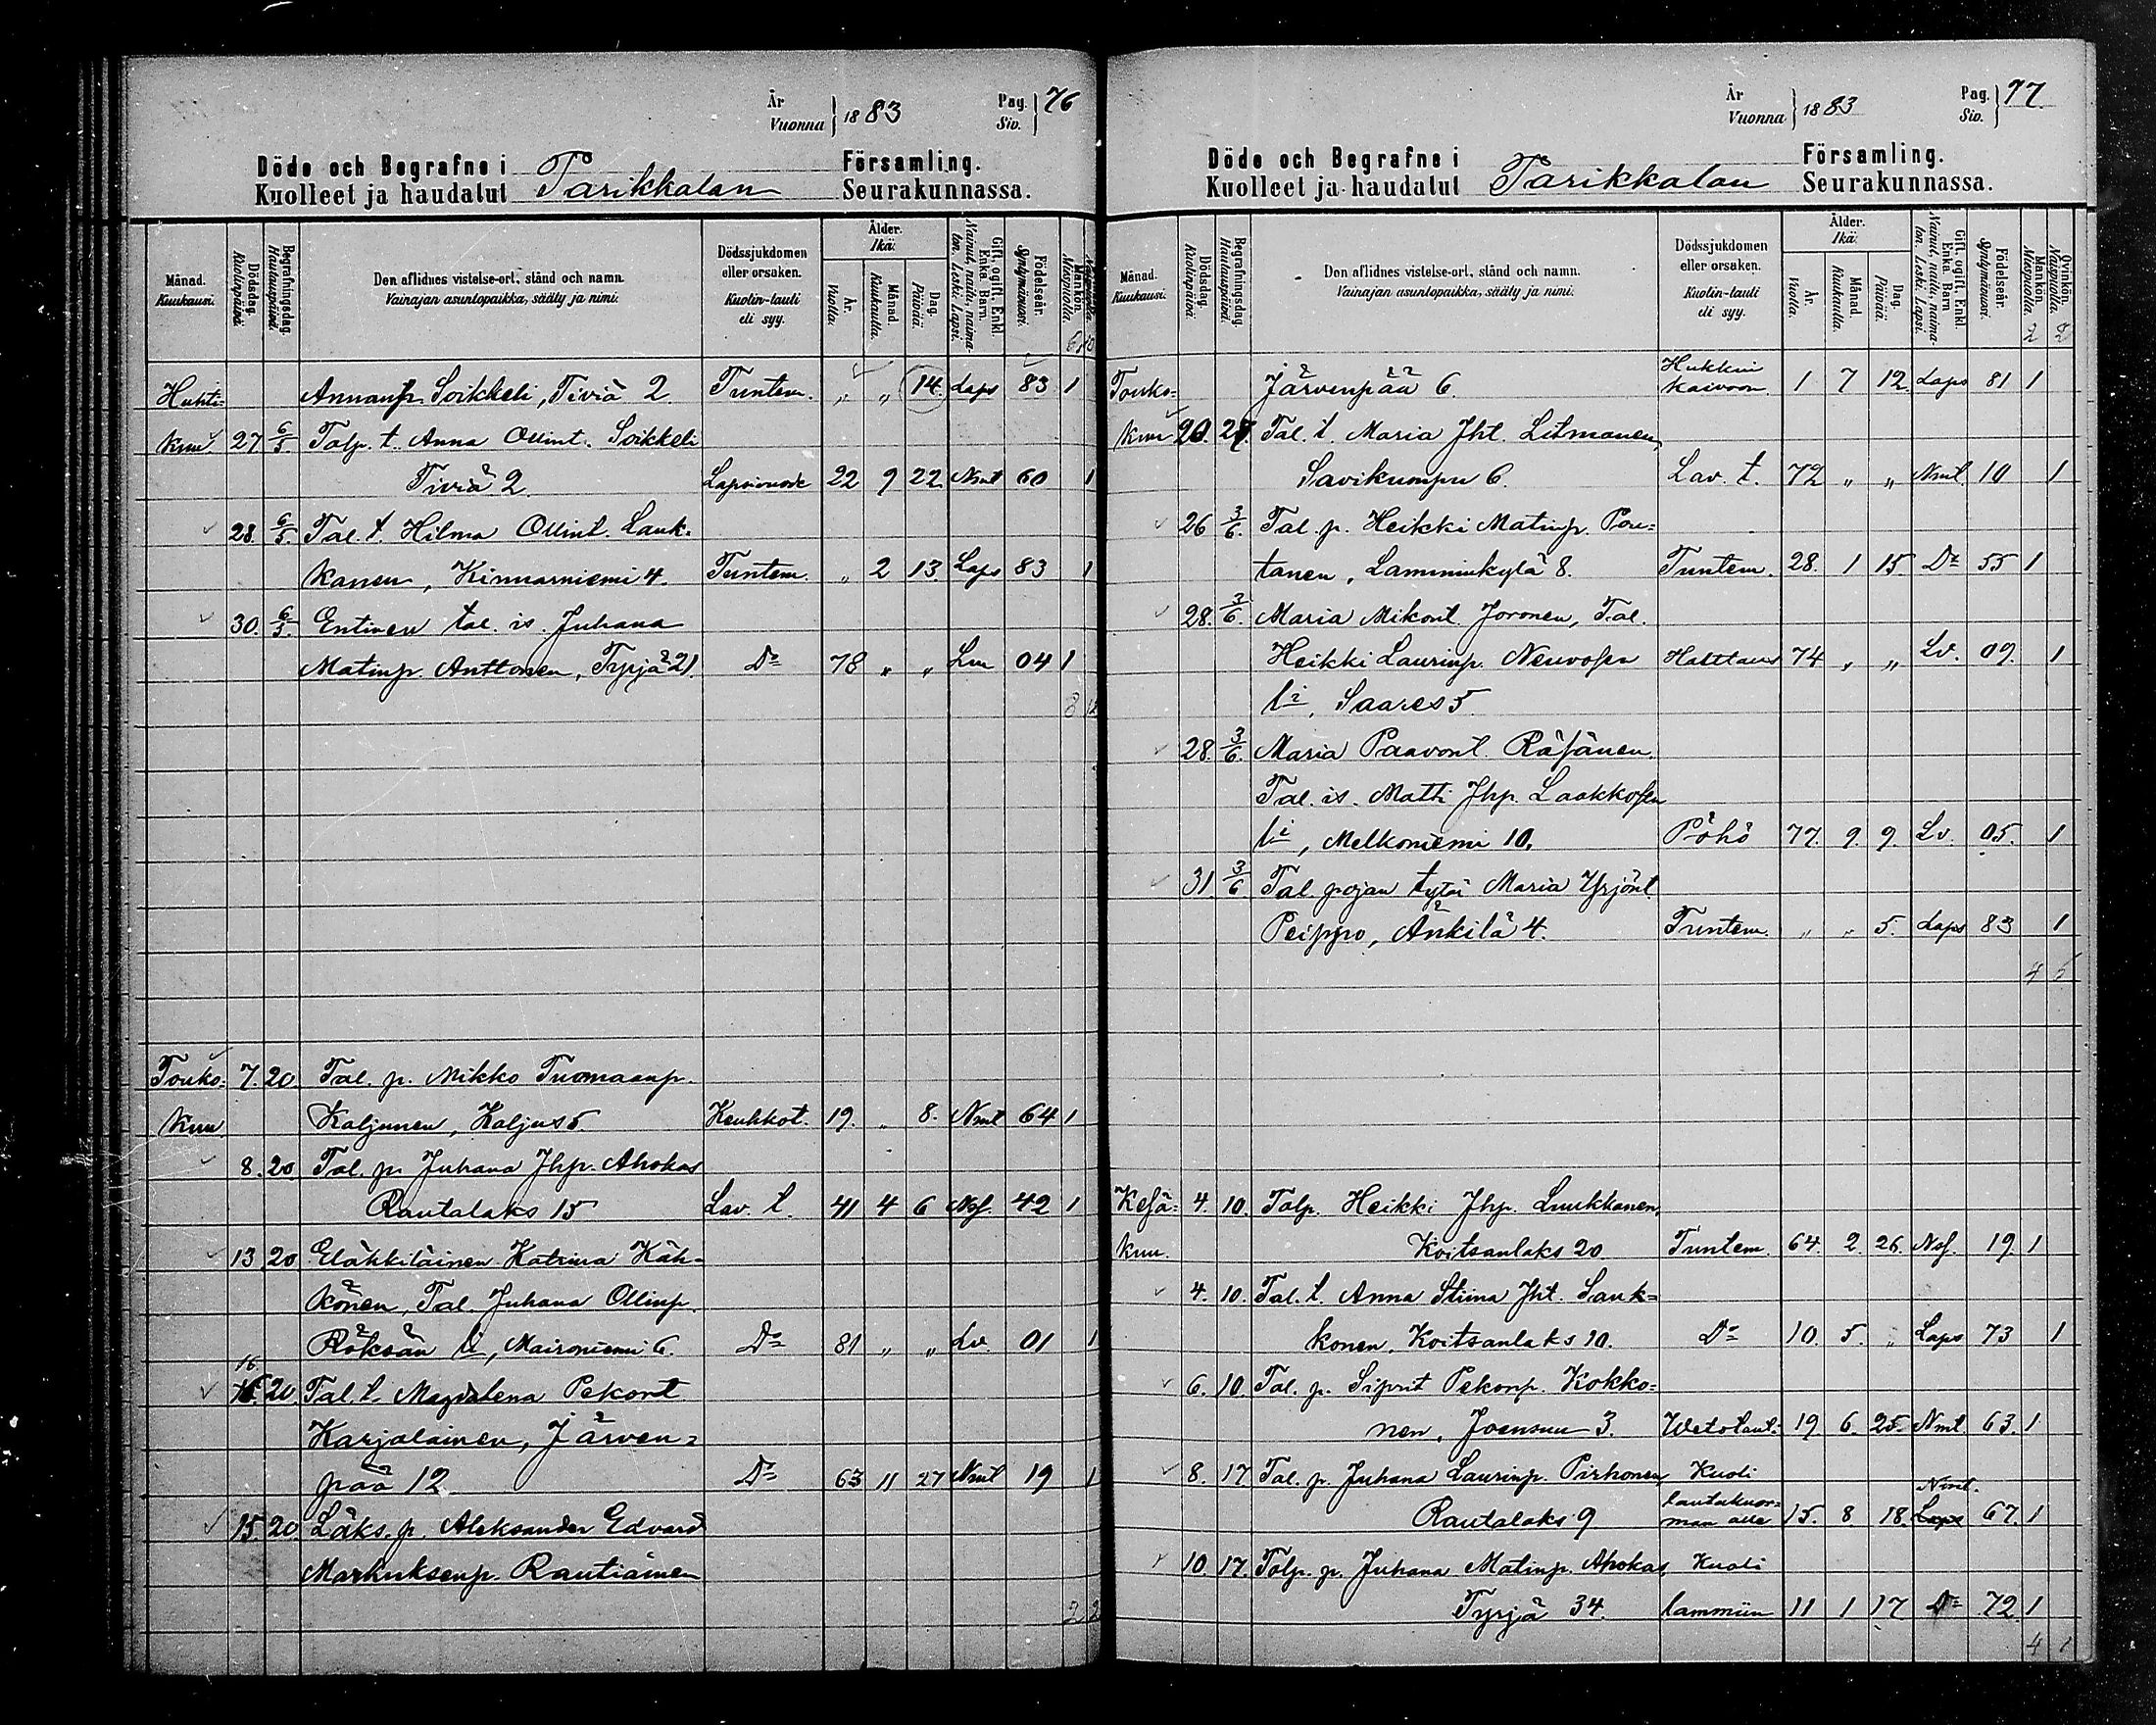 År
Vuonna } 1883
Pag.
Siv. } 76
Döde och Begrafne i Församling.
Kuolleet ja haudatut Parikkalan Seurakunnassa.
Månad. Kuukausi.
Dödsdag. Kuolinpäivä.
Begrafningsdag. Hautauspäivä.
Den aflidnes vistelse-ort, stånd och namn.
Vainajan asuntopaikka, sääty ja nimi.
Dödssjukdomen eller orsaken.
Kuolin-tauti eli syy.
Ålder. Ikä.
År. Vuotta.
Månad. Kuukautta.
Dag. Päivää.
Gift, ogift, Enkl. Enka. Barn.
Nainut, naitu, naimaton. Leski. Lapsi.
Födelseår. Syntymävuosi.
Mankön. Miespuolia.
6 10
Huhti= Annanp. Soikkeli, Tiviä 2. Tuntem. „ „ 14. Laps 83 1
kuu. 27 6/5. Talp. t. Anna Ollint. Soikkeli
Tiviä 2 Lapsivuode 22 9 22 Nmt 60 1
28. 6/5. Tal. t. Hilma Ollint. Lauk=
kanen, Kinnarniemi 4. Tuntem. „ 2 13 Laps 83 1
30. 6/5. Entinen tal. is. Juhana
Matinp. Anttonen, Tyrjä 21. Do 78 „ „ Lm 04 1
8 12
Touko= 7. 20. Tal. p. Mikko Tuomaanp.
kuu. Kaljunen, Kaljus 5. Keuhkot. 19. „ 8. Nmt 64 1
8. 20 Tal. p. Juhana Jhp. Ahokas
Rautalaks 15 Lav. t. 41 4 6 Nof. 42 1
13 20 Eläkkiläinen Katrina Käh=
könen, Tal. Juhana Ollinp.
Röksän li, Maironiemi 6. Do 81 „ „ Lv. 01 1
16
20. Tal. t. Magdalena Pekont.
Karjalainen, Järven=
pää 12. Do 63 11 27 Nmt 19 1
15 20. Läks. p. Aleksander Edvard
Markuksenp. Rautiainen
2 2
År
Vuonna } 1883
Pag.
Siv. } 77.
Döde och Begrafne i Församling.
Kuolleet ja haudatut Parikkalan Seurakunnassa.
Månad. Kuukausi.
Dödsdag. Kuolinpäivä.
Begrafningsdag. Hautauspäivä.
Den aflidnes vistelse-ort, stånd och namn.
Vainajan asuntopaikka, sääty ja nimi.
Dödssjukdomen eller orsaken.
Kuolin-tauti eli syy.
Ålder. Ikä.
År. Vuotta.
Månad. Kuukautta.
Dag. Päivää.
Gift, ogift, Enkl. Enka. Barn.
Nainut, naitu, naimaton. Leski. Lapsi.
Födelseår. Syntymävuosi.
Mankön. Miespuolia.
Qvinkön. Naispuolia.
2 2
Hukkui
Touko= Järvenpää 6. kaivoon 1 7 12. Laps 81 1
kuu 20. 27. Tal. t. Maria Jht. Litmanen,
Savikumpu 6. Lav. t. 72 „ „ Nmt. 10 1
26 3/6. Tal. p. Heikki Matinp. Pou=
tanen, Lamminkylä 8. Tuntem. 28. 1 15. Do 55 1
28. 3/6. Maria Mikont. Joronen, Tal.
Heikki Laurinp. Neuvosen Halttaus 74 „ „ Lv. 09. 1
li, Saares 5.
28. 3/6. Maria Paavont. Räsänen.
Tal. is. Matti Jhp. Laakkosen
li, Melkoniemi 10. Pöhö 77. 9. 9. Lv. 05. 1
31. 3/6. Tal. pojan tytär Maria Yrjönt.
Peippo, Änkilä 4. Tuntem. „ „ 5. Laps 83 1
4 5
Kesä= 4. 10. Talp. Heikki Jhp. Luukkanen,
kuu. Koitsanlaks 20 Tuntem. 64. 2. 26. Nof. 19. 1
4. 10. Tal. t. Anna Stiina Jht. Sauk=
konen, Koitsanlaks 10. Do 10. 5. „ Laps 73 1
6. 10. Tal. p. Siprit Pekonp. Kokko=
nen, Joensuu 3. Wetotaut. 19 6. 25. Nmt. 63. 1
8. 17. Tal. p. Juhana Laurinp. Pirhonen, Kuoli
Rautalaks 9 lautakuor=
man alle 15. 8. 18. Nmt. Laps 67. 1
10. 17. Talp. p. Juhana Matinp. Ahokas, Kuoli
Tyrjä 34. lammiin 11 1 17 Do 72. 1
4 1